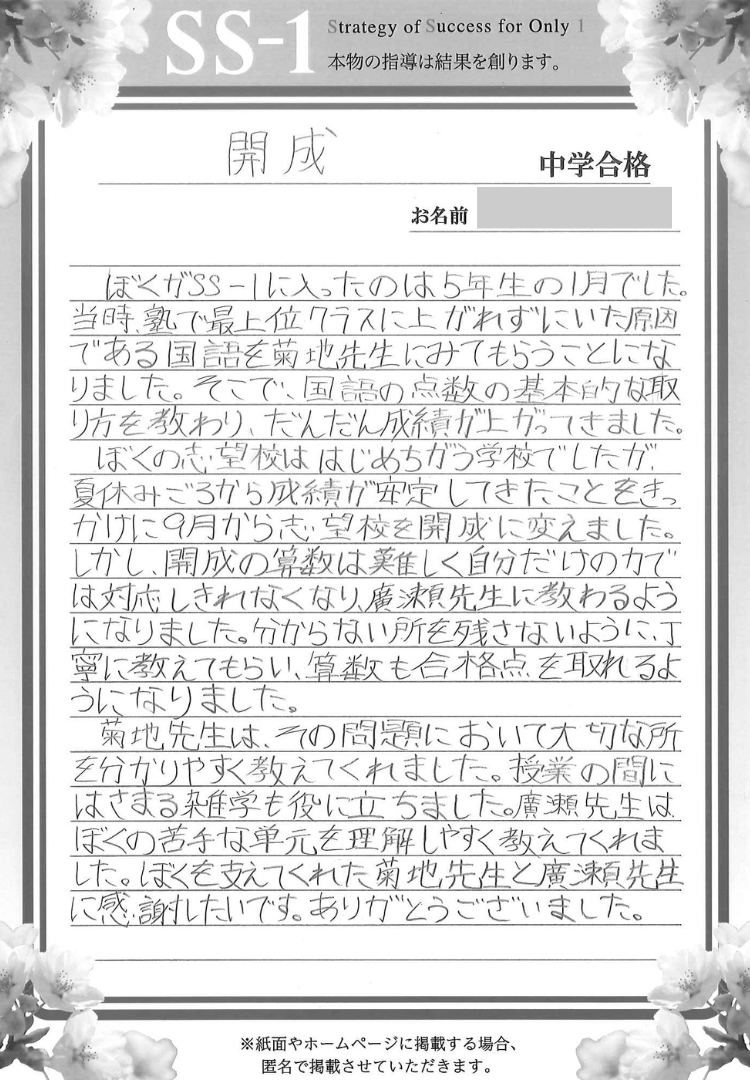 SS-1
Strategy of Success for Only 1
本物の指導は結果を創ります。
開成
中学合格
お名前
ぼくがSS-1に入ったのは5年生の1月でした。
当時、塾で最上位クラスに上がれずにいた原因
である国語を菊地先生にみてもらうことにな
りました。そこで、国語の点数の基本的な取
り方を教わり、だんだん成績が上がってきました。
ぼくの志望校ははじめちがう学校でしたが、
夏休みごろから成績が安定してきたことをきっ
かけに9月から志望校を開成に変えました。
しかし、開成の算数は難しく自分だけの力で
は対応しきれなくなり、廣瀬先生に教わるよう
になりました。分からない所を残さないように、丁
寧に教えてもらい、算数も合格点を取れるよ
うになりました。
菊地先生は、その問題において大切な所
を分かりやすく教えてくれました。授業の間に
はさまる雑学も役に立ちました。廣瀬先生は
ぼくの苦手な単元を理解しやすく教えてくれま
した。ぼくを支えてくれた菊地先生と廣瀬先生
に感謝したいです。ありがとうございました。
※紙面やホームページに掲載する場合、
匿名で掲載させていただきます。